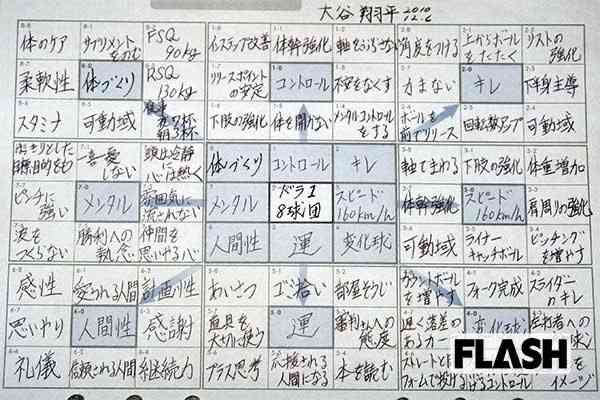 大谷翔平 2010 12.6
体のケア
サプリメントをのむ
FSQ 90kg
インステップ改善
体幹強化
軸をぶらさない
角度をつける
上からボールをたたく
リストの強化
柔軟性
体づくり
RSQ 130kg
リリースポイントの安定
コントロール
不安をなくす
力まない
キレ
下半身主導
スタミナ
可動域
食事 夜7杯 朝3杯
下肢の強化
体を開かない
メンタルコントロールをする
ボールを前でリリース
回転数アップ
可動域
はっきりとした目標、目的をもつ
一喜一憂しない
頭は冷静に心は熱く
体づくり
コントロール
キレ
軸でまわる
下肢の強化
体重増加
ピンチに強い
メンタル
雰囲気に流されない
メンタル
ドラ1 8球団
スピード160km/h
体幹強化
スピード160km/h
肩周りの強化
波をつくらない
勝利への執念
仲間を思いやる心
人間性
運
変化球
可動域
ライナーキャッチボール
ピッチングを増やす
感性
愛される人間
計画性
あいさつ
ゴミ拾い
部屋そうじ
カウントボールを増やす
フォーク完成
スライダーのキレ
思いやり
人間性
感謝
道具を大切に使う
運
審判さんへの態度
遅く落差のあるカーブ
変化球
左打者への
礼儀
信頼される人間
継続力
プラス思考
応援される人間になる
本を読む
ストレートと同じフォームで投げる
コントロール
をイメージ
FLASH